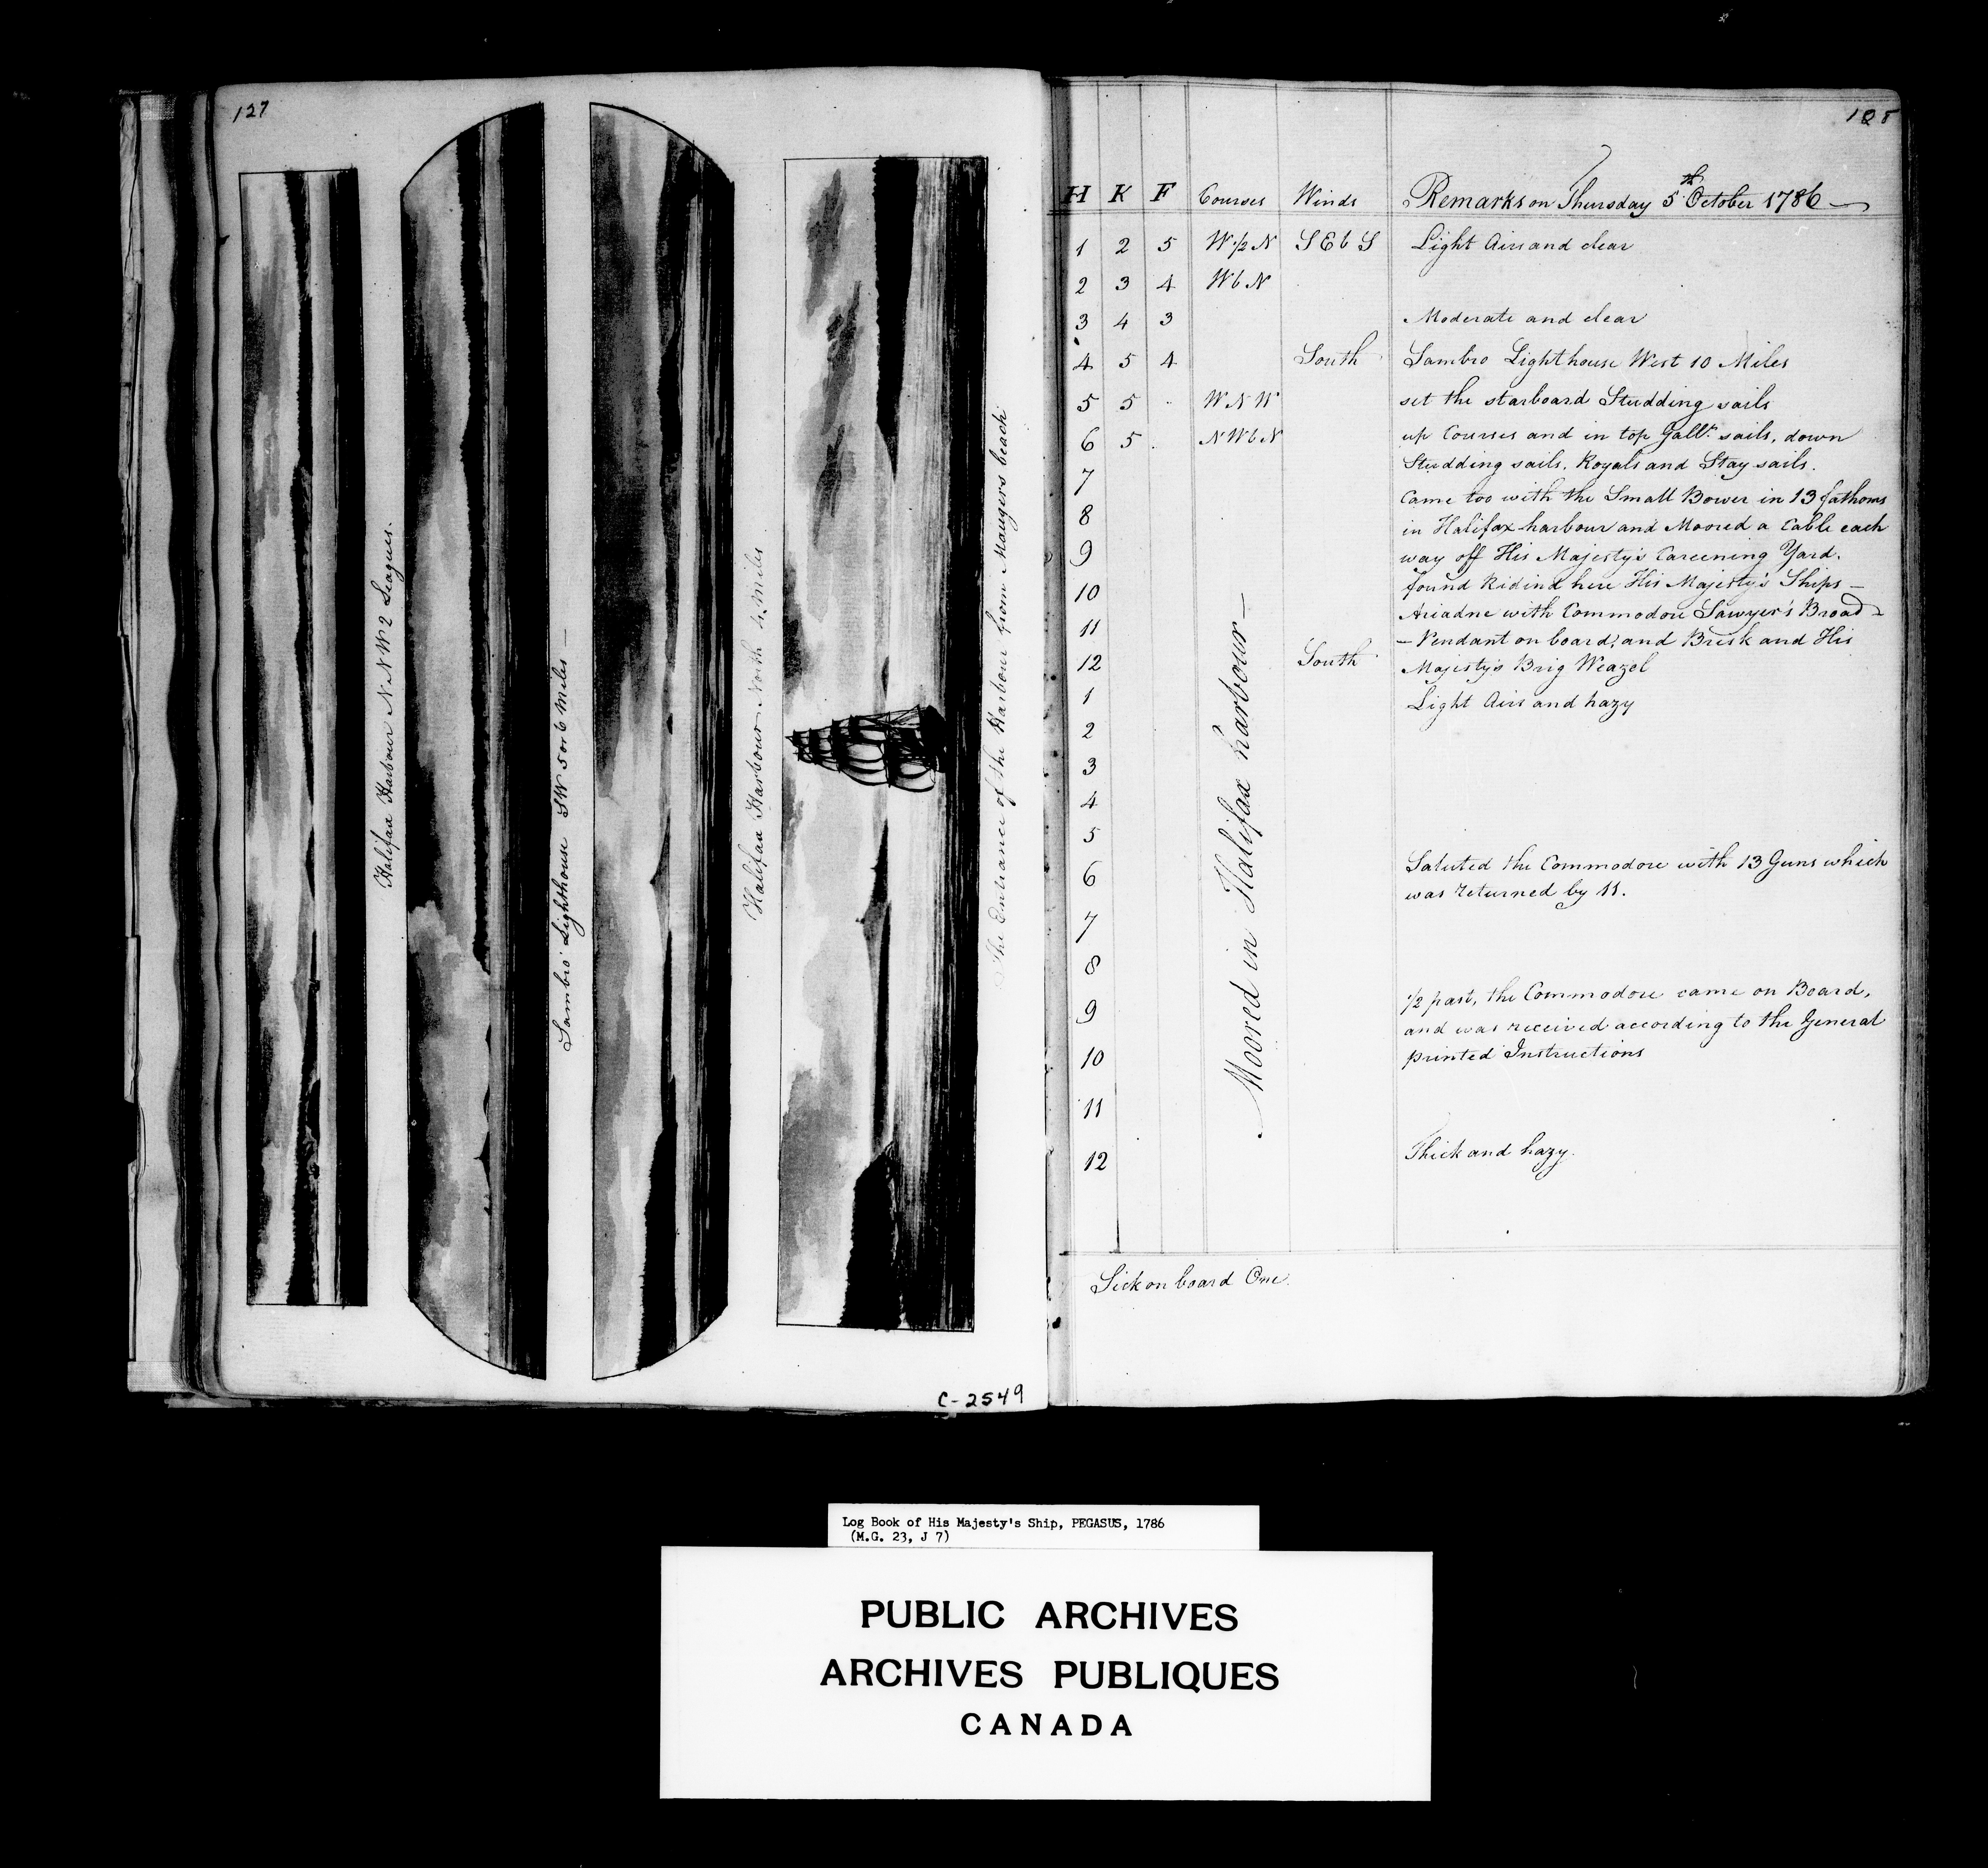 127
Halifax Harbour NNW 2 Leagues.
Sambro' Lighthouse SW 5 or 6 Miles —
Halifax Harbour North 4 Miles
The Entrance of the Harbour from Maugers beach
C-2549
128
H K F Courses Winds Remarks on Thursday 5th October 1786 —
1 2 5 W½N SEbS Light Airs and clear
2 3 4 WbN
3 4 3 Moderate and clear
4 5 4 South Sambro Lighthouse West 10 Miles
5 5 - WNW set the starboard Studding sails
6 5 . NWbN up Courses and in top Gallt. sails, down
Studding sails, Royals and Stay sails.
7 Came too with the Small Bower in 13 fathoms
8 in Halifax harbour and Moored a Cable each
9 way off His Majesty's Careening Yard.
10 found Ridind here His Majesty's Ships —
11 Ariadne with Commodore Sawyer's Broad -
— Pendant on board, and Brisk and His
12 South Majesty's Brig Weazel
1 Light Airs and hazy
2
3
4
5
6 Saluted the Commodore with 13 Guns which
was returned by 11.
7
8
9 ½ past, the Commodore came on Board,
and was received according to the General
10 printed Instructions
11
12 Thick and hazy.
Moored in Halifax harbour —
Sick on board One.
Log Book of His Majesty's Ship, PEGASUS, 1786
(M.G. 23, J 7)
PUBLIC ARCHIVES
ARCHIVES PUBLIQUES
CANADA